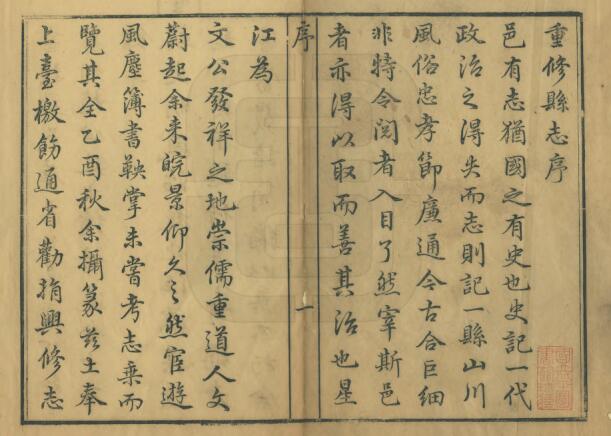 重修縣志序
邑有志猶國之有史也史記一代
政治之得失而志則記一縣山川
風俗忠孝節廉通今古合巨細
非特令閱者入目了然宰斯邑
者亦得以取而善其治也星
序
一
江為
文公發祥之地崇儒重道人文
蔚起余来皖景仰久之然宦遊
風塵簿書鞅掌未嘗考志乗而
覽其全乙酉秋余攝篆兹土奉
上臺檄飭通省勸捐興修志